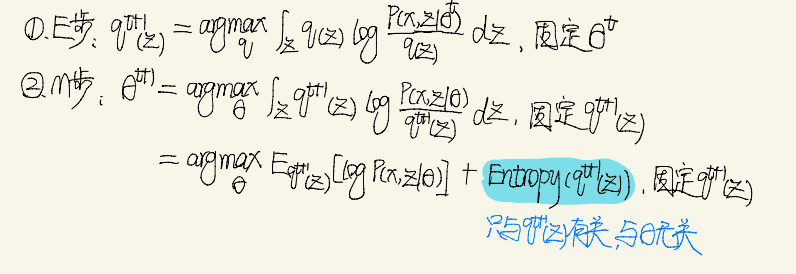 ①.E步: q^{t+1}(z) = argmax_q ∫_z q(z) log \frac{P(x,z|θ^t)}{q(z)} dz, 固定θ^t
②M步: θ^{t+1} = argmax_θ ∫_z q^{t+1}(z) log \frac{P(x,z|θ)}{q^{t+1}(z)} dz, 固定q^{t+1}(z)
= argmax_θ E_{q^{t+1}(z)}[log P(x,z|θ)] + Entropy(q^{t+1}(z)), 固定q^{t+1}(z)
只与q^{t+1}(z)有关,与θ无关